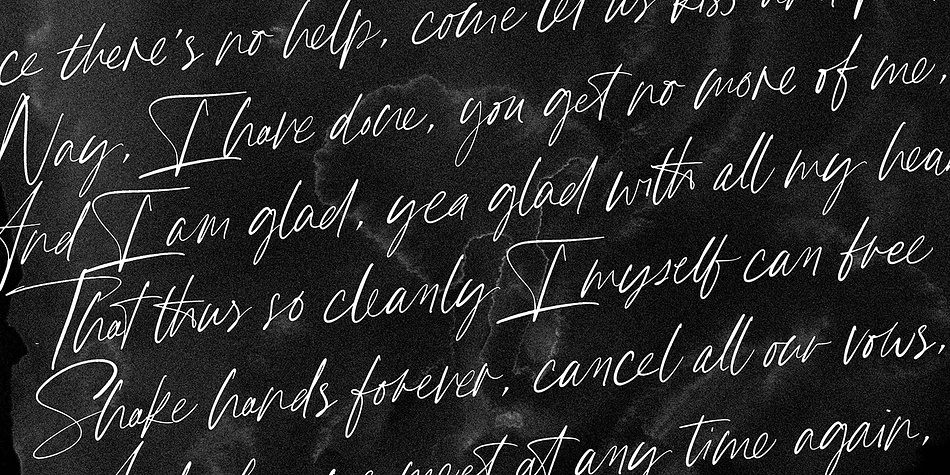 ce there's no help, come let us kiss
Nay, I have done, you get no more of me,
And I am glad, yea glad with all my hear
That thus so cleanly I myself can free
Shake hands forever, cancel all our vows,
meet at any time again,